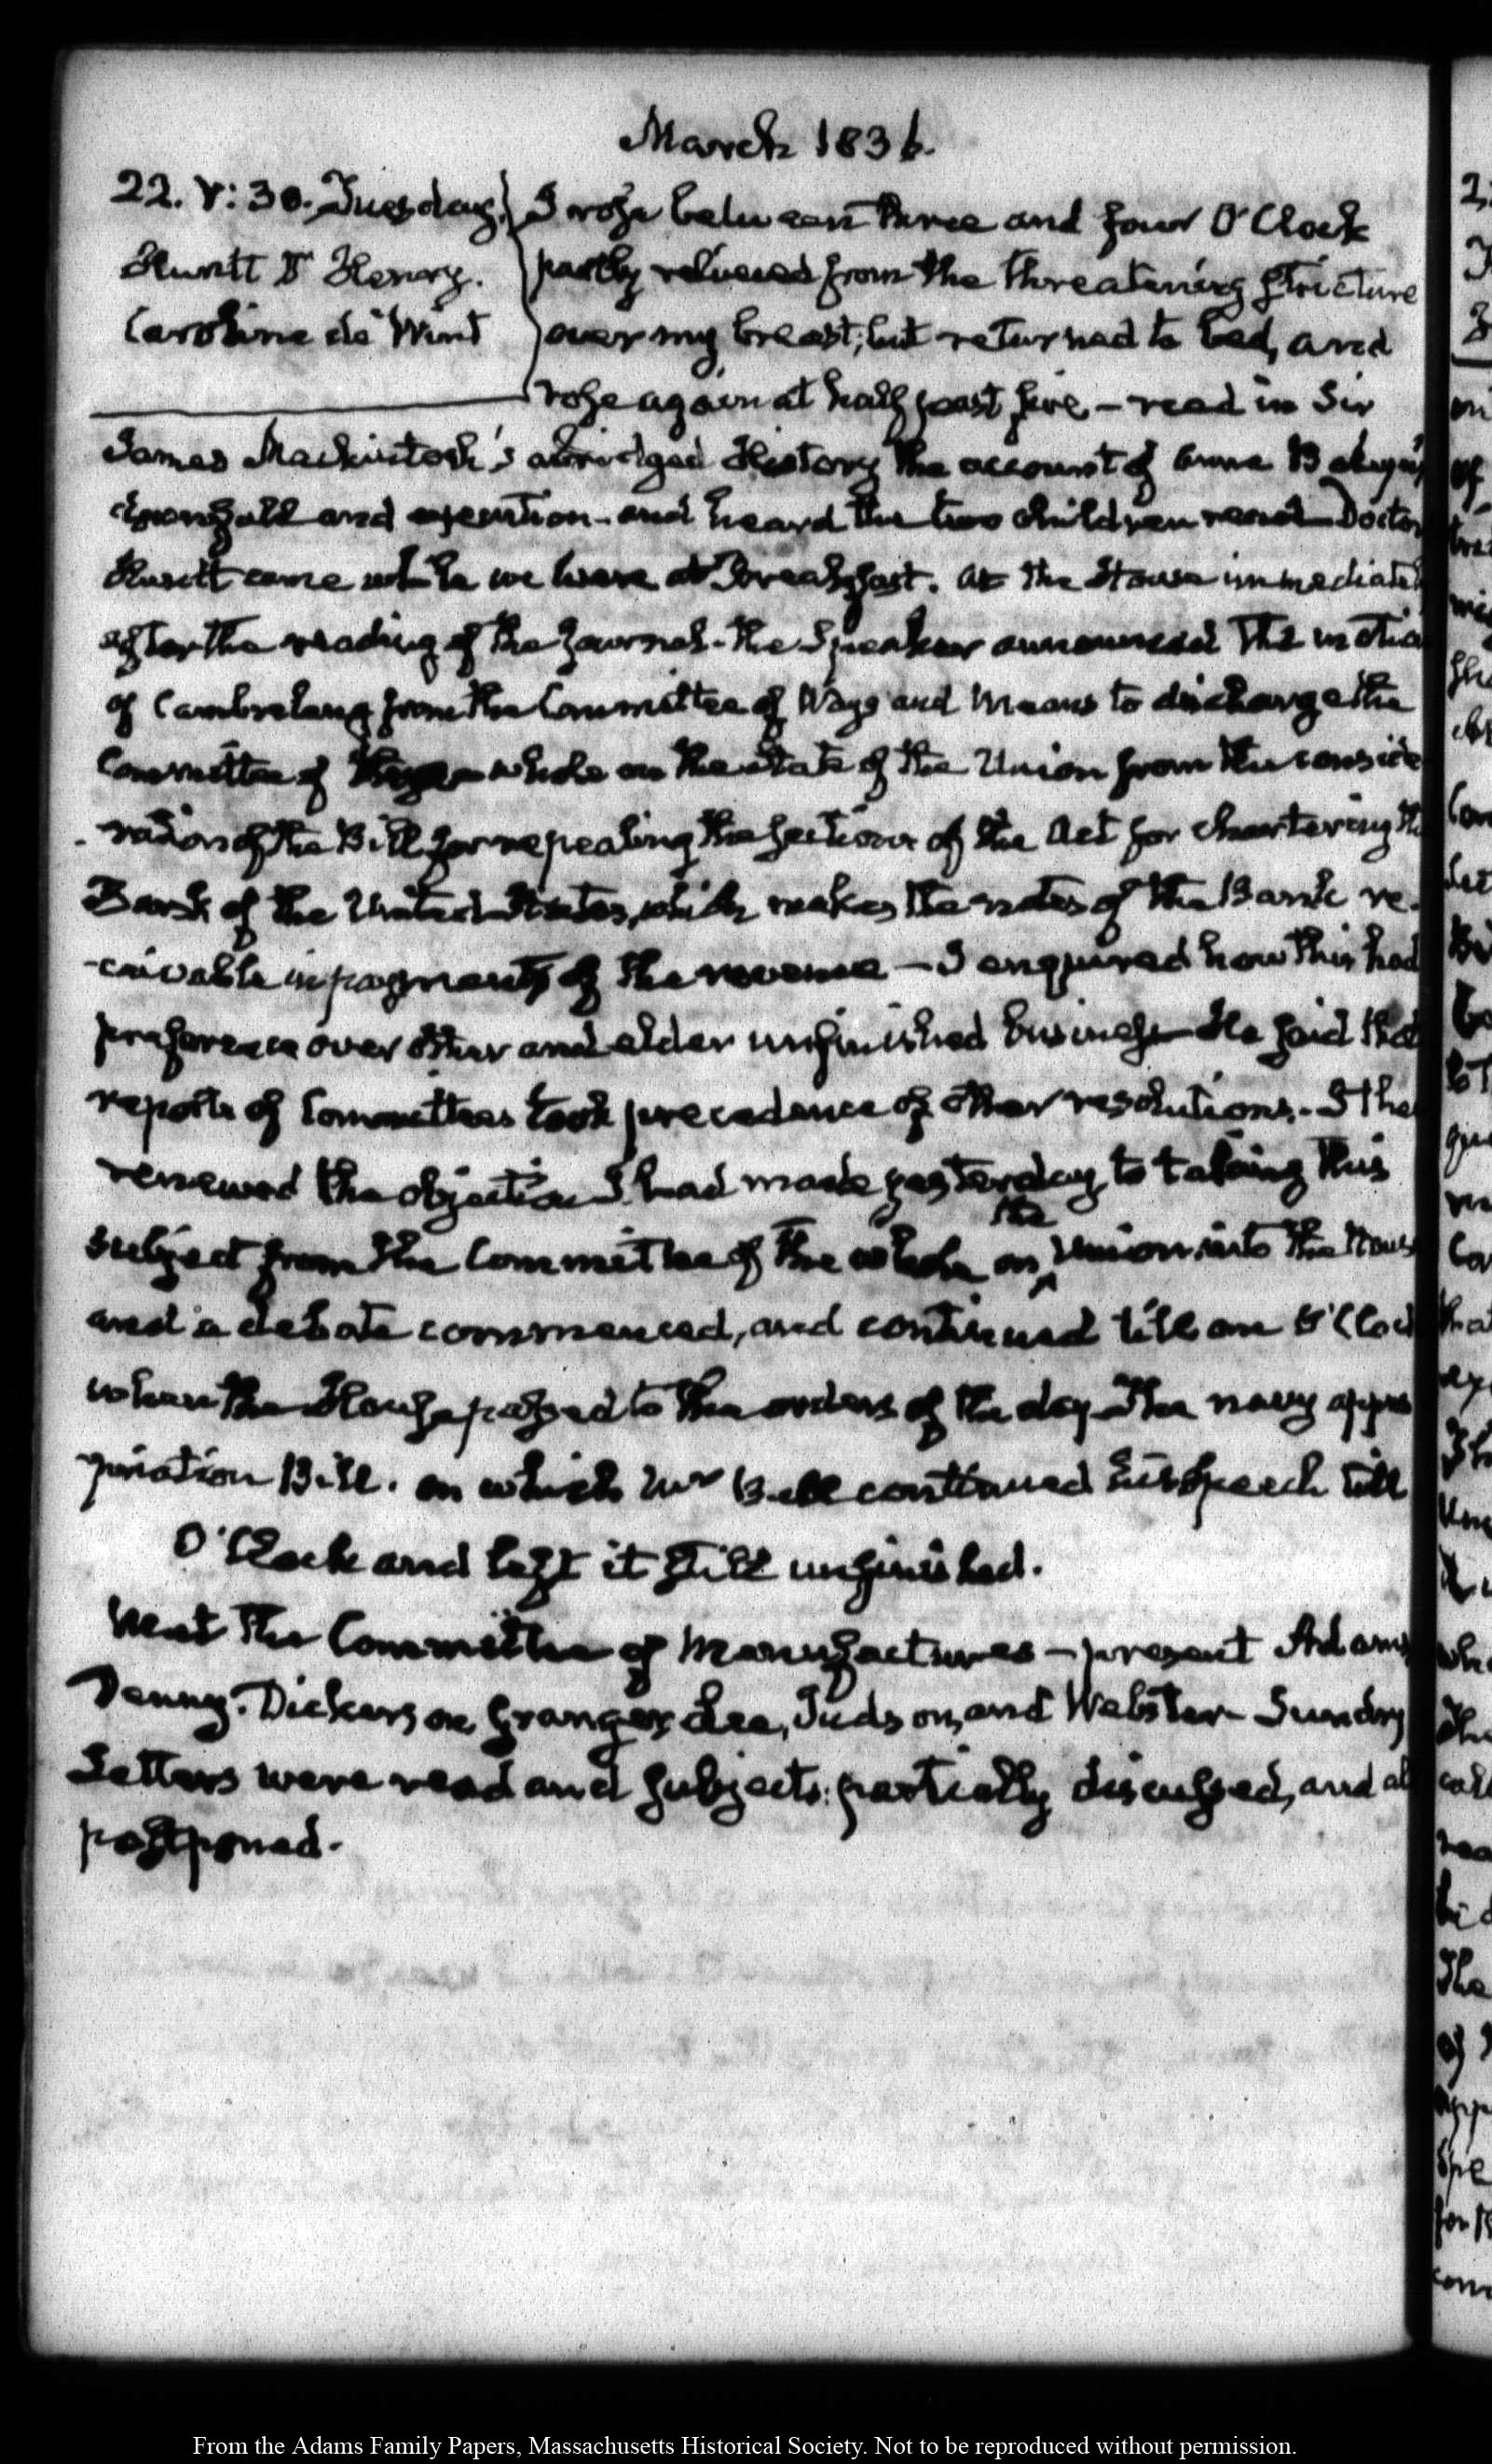 March 1836.
22. V:30. Tuesday.
Huntt Dr Henry.
Caroline de Wint
I rose between three and four O'Clock
partly relieved from the threatening stricture
over my breast; but returned to bed, and
rose again at half past five – read in Sir
James Mackintosh's abridged History the account of Anne Boleyn's
downfall and execution – and heard the two children read – Doctor
Huntt came while we were at Breakfast. At the House immediatel
after the reading of the Journal – the Speaker announced the motio
of Cambreleng from the Committee of Ways and Means to discharge the
Committee of the whole on the State of the Union from the conside
-ration of the Bill for repealing the section of the Act for chartering th
Bank of the United States, which makes the notes of the Bank re-
-ceivable in payments of the revenue – I enquired how this had
preference over other and elder unfinished business – He said that
reports of Committees took precedence of other resolutions. – I the
renewed the objection I had made yesterday to taking this
subject from the Committee of the whole on the Union, into the Hous
and a debate commenced, and continued till one O'Cloc
when the House passed to the orders of the day – The navy appro
priation Bill. on which Mr Bell continued his speech till
O'Clock and left it still unfinished.
Meat the Committee of Manufactures – present Adams
Denny. Dickerson, Granger, Lee, Judson, and Webster – Sundry
Letters were read and subjects partially discussed, and al
postponed.
From the Adams Family Papers, Massachusetts Historical Society. Not to be reproduced without permission.